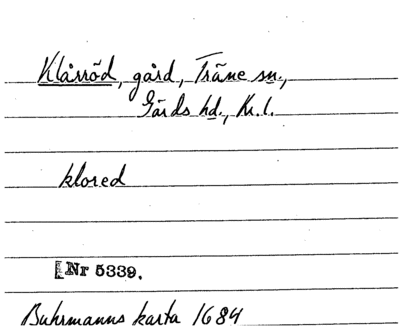 Klårröd, gård, Träne sn.,
Gärds hd., Kr.l.
klored
Nr 5339.
Buhrmanns karta 1684